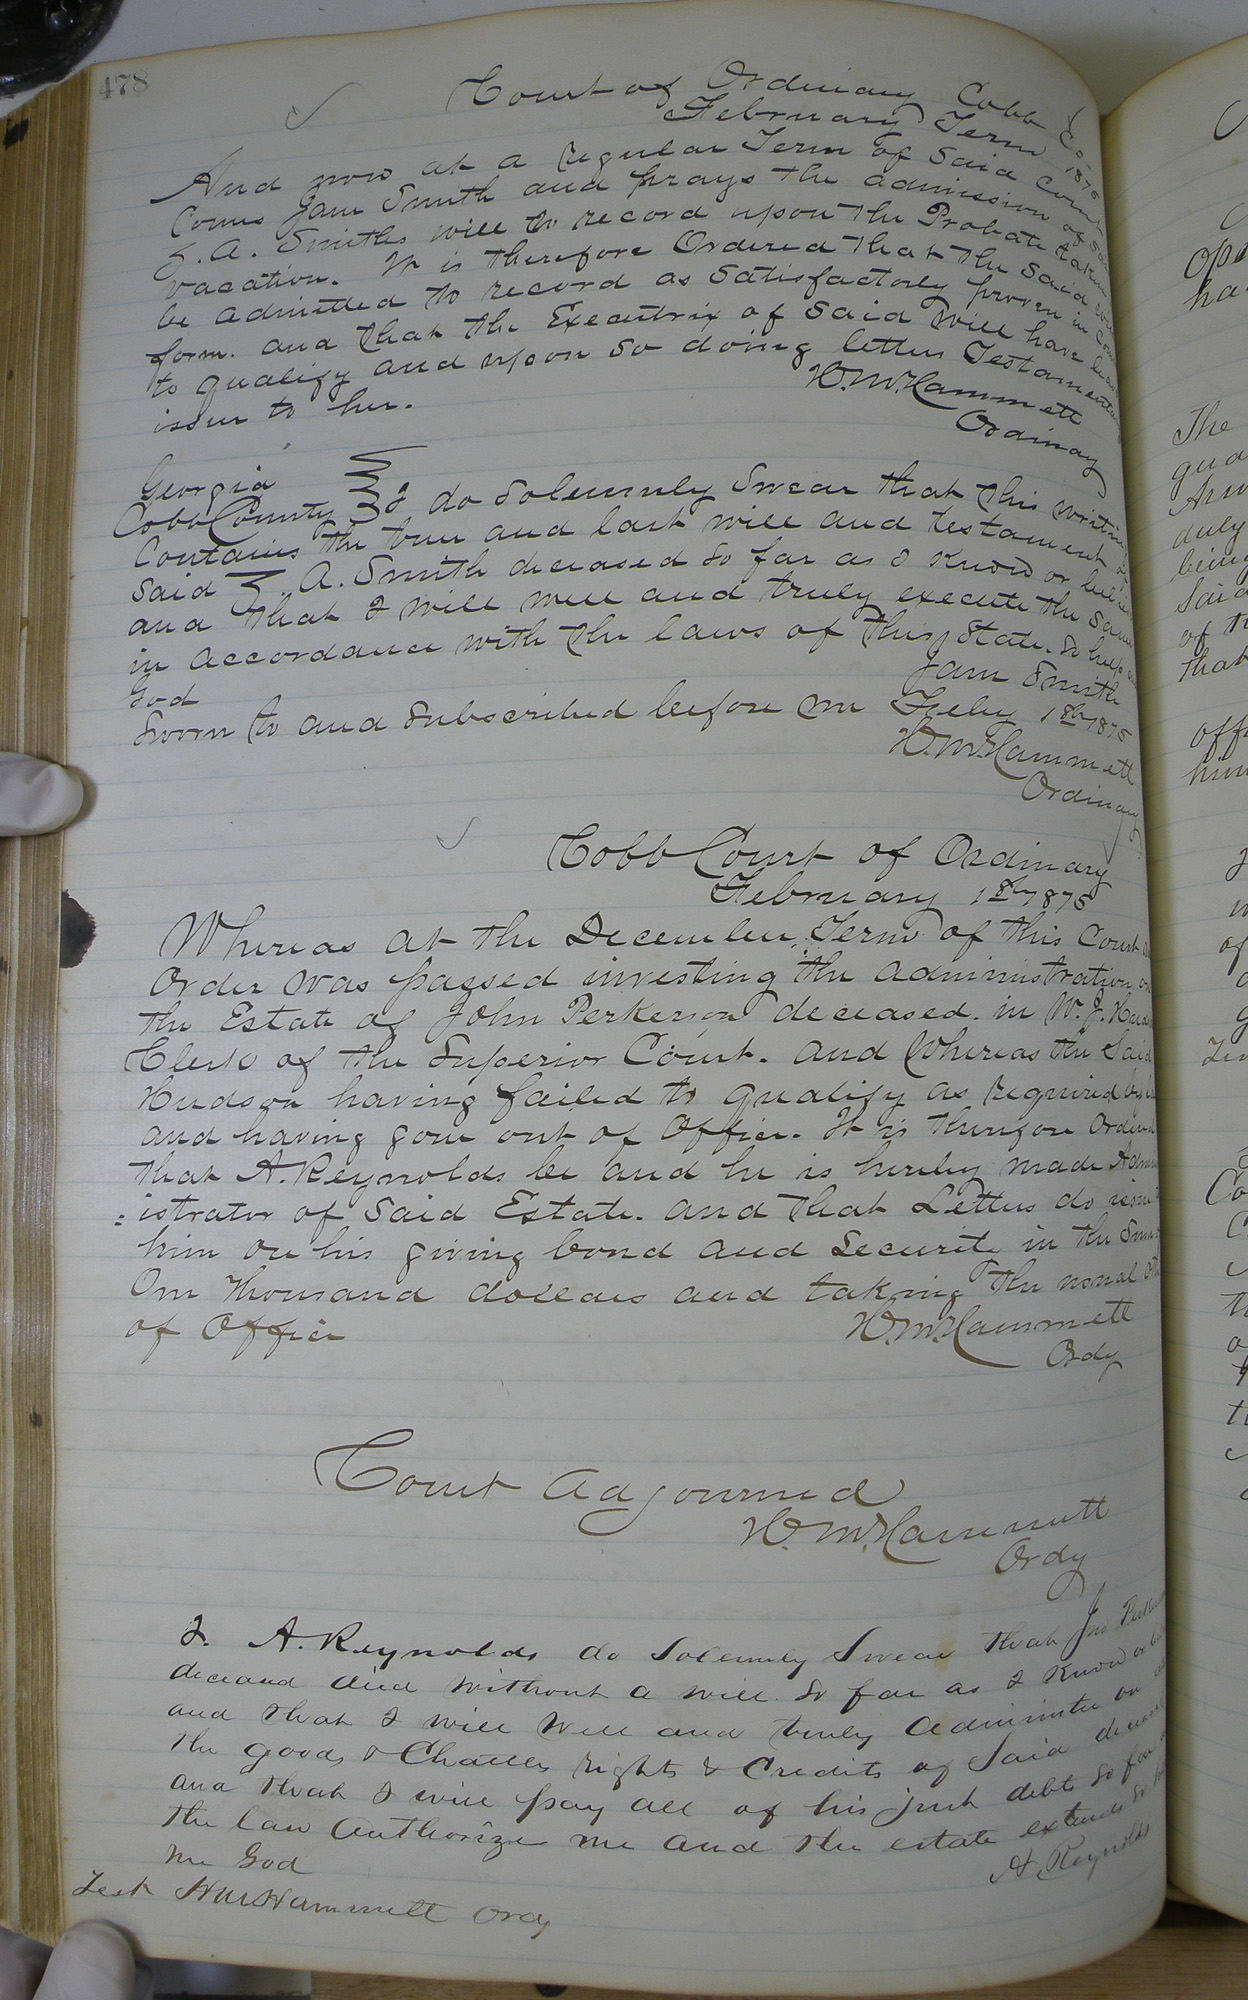 478
Court of Ordinary Cobb Co
February Term 1875
And now at a Regular Term of Said Court
Comes Jane Smith and prays the admission of Said
Z. A. Smiths will to record upon the Probate taken
vacation. It is therefore Ordered that the Said will
be admitted to record as Satisfactorly proven in Com
form. and that the Executrix of Said Will have
to qualify and upon So doing letters Testamentary
issue to her.
W. M. Hammett
Ordinay
Georgia
Cobb County I do Solemnly Swear that this writing
Contains the true and last will and testament
Said Z. A. Smith deceased So far as I Know or believe
and that I will well and truly execute the Same
in accordance with the laws of this State. So help
God
Jane Smith
Sworn to and Subscribed before me Feby 1st 1875
W. M. Hammett
Ordinary
Cobb Court of Ordinary
February 1st 1875
Whereas at the December Term of this Court
Order was passed investing the administration on
the Estate of John Perkerson deceased. in W. J. Hudson
Clerk of the Superior Court. And Whereas the Said
Hudson having failed to qualify as required by
and having gone out of Office. It is Therefore Ordered
that A. Reynolds be and he is hereby made Admin
=istrator of Said Estate. and that Letters do issue
him on his giving bond and Security in the Sum
One Thousand dollars and taking the usual
of Office
W. M. Hammett
Ordy
Court adjourned
W. M. Hammett
Ordy
I. A. Reynolds do Solemnly Swear that Jno
deceased died without a will. So far as I Know or
and that I will well and truly adminster on
the goods & Chatles rights & Credits of Said deceased
and that I will pay all of his just debts So far
the law Authorize me and the estate extends So
me God
A. Reynolds
Test W M Hammett Ordy